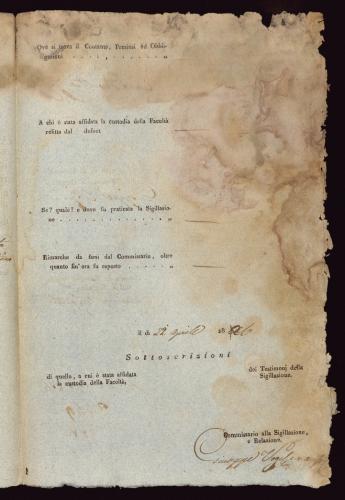 Ove si trova il Contante, Preziosi ed Obbli-
gazioni . . . . , . . . . . „
A chi è stata affidata la custodia della Facoltà
relitta dal defont
Se? quale? e dove fu praticata la Sigillazio-
ne . . . . . . , . . . . . „
Rimarche da farsi dal Commissario, oltre
quanto fin' ora fu esposto . . . . . „
il dì 22 aprile 18
Sottoscrizioni
di quello, a cui è stata affidata
la custodia della Facoltà,
dei Testimonj della
Sigillazione.
Commissario alla Sigillazione,
e Relazione.
Giuseppe